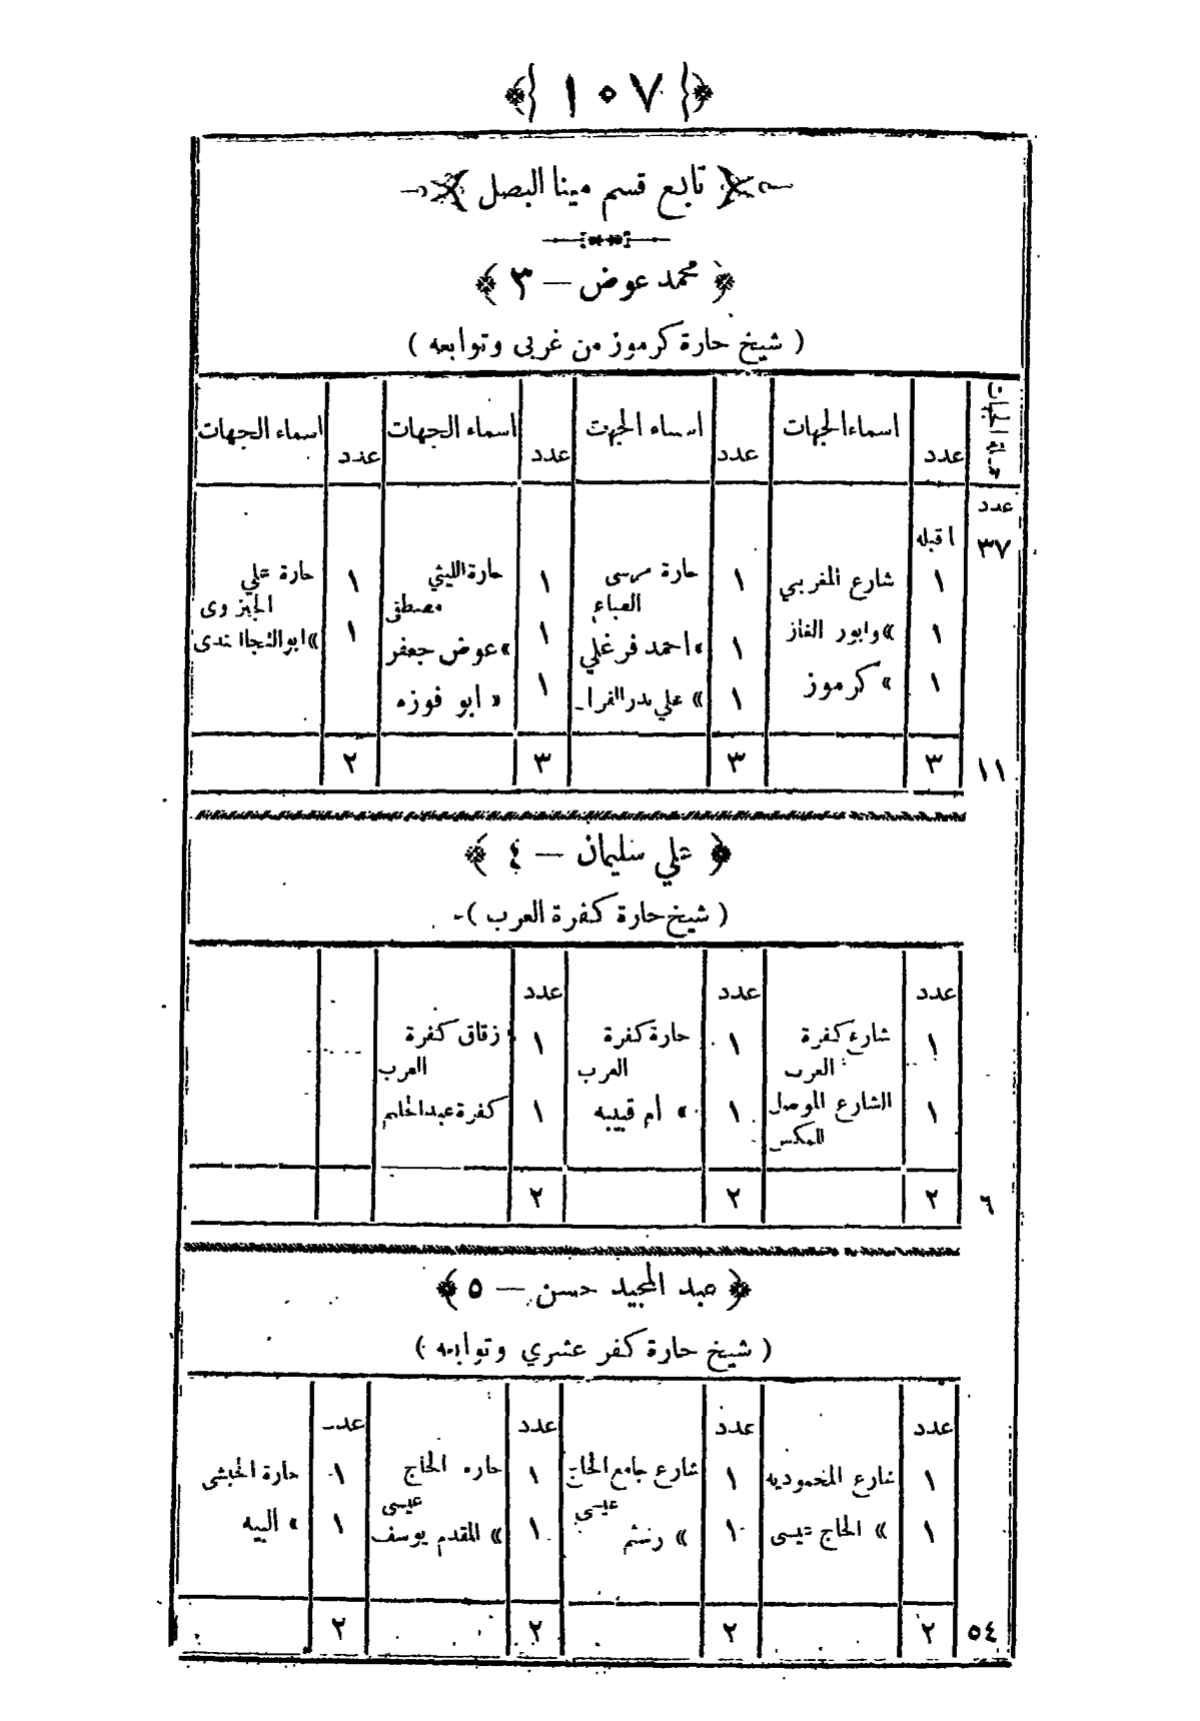 ١٠٧
تابع قسم مينا البصل
محمد عوض — ٣
( شيخ حارة كرموز من غربى وتوابعه )
جملة الجهات عدد اسماء الجهات عدد اسماء الجهت عدد اسماء الجهات عدد اسماء الجهات
عدد
٣٧ ماقبله
١ شارع المغربي ١ حارة مرسى ١ حارة الليثي ١ حارة علي
العباء مصطفى الجنزوى
١ » وابور الغاز ١ » احمد فرغلي ١ » عوض جعفر ١ » ابوالنجاافندى
١ » كرموز ١ » علي بدر ١ » ابو فوزه
١١ ٣ ٣ ٣ ٢
علي سليمان — ٤
( شيخ حارة كفرة العرب )
عدد عدد عدد
١ شارع كفرة ١ حارة كفرة ١ زقاق كفرة
العرب العرب العرب
١ الشارع الموصل ١ » أم قبيبه ١ كفرة عبدالحليم
للمكس
٦ ٢ ٢ ٢
عبد المجيد حسن — ٥
( شيخ حارة كفر عشري وتوابعه )
عدد عدد عدد عدد
١ شارع المحموديه ١ شارع جامع الحاج ١ حاره الحاج ١ حارة الحبشى
عيسى عيسى
١ » الحاج عيسى ١ » رستم ١ » المقدم يوسف ١ » البيه
٥٤ ٢ ٢ ٢ ٢